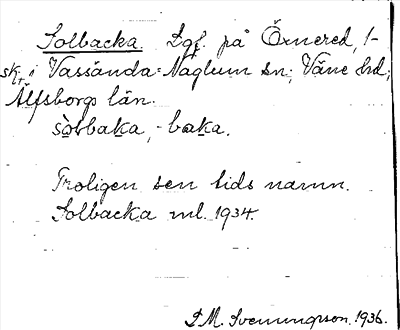 Solbacka. Lgf. på Örnered, 1-
sk. i Vassända-Naglum sn; Väne hd;
Älfsborgs län.
sòlbaka, -baka.
Troligen sen tids namn.
Solbacka ml. 1934.
Svenungsson. 1936.